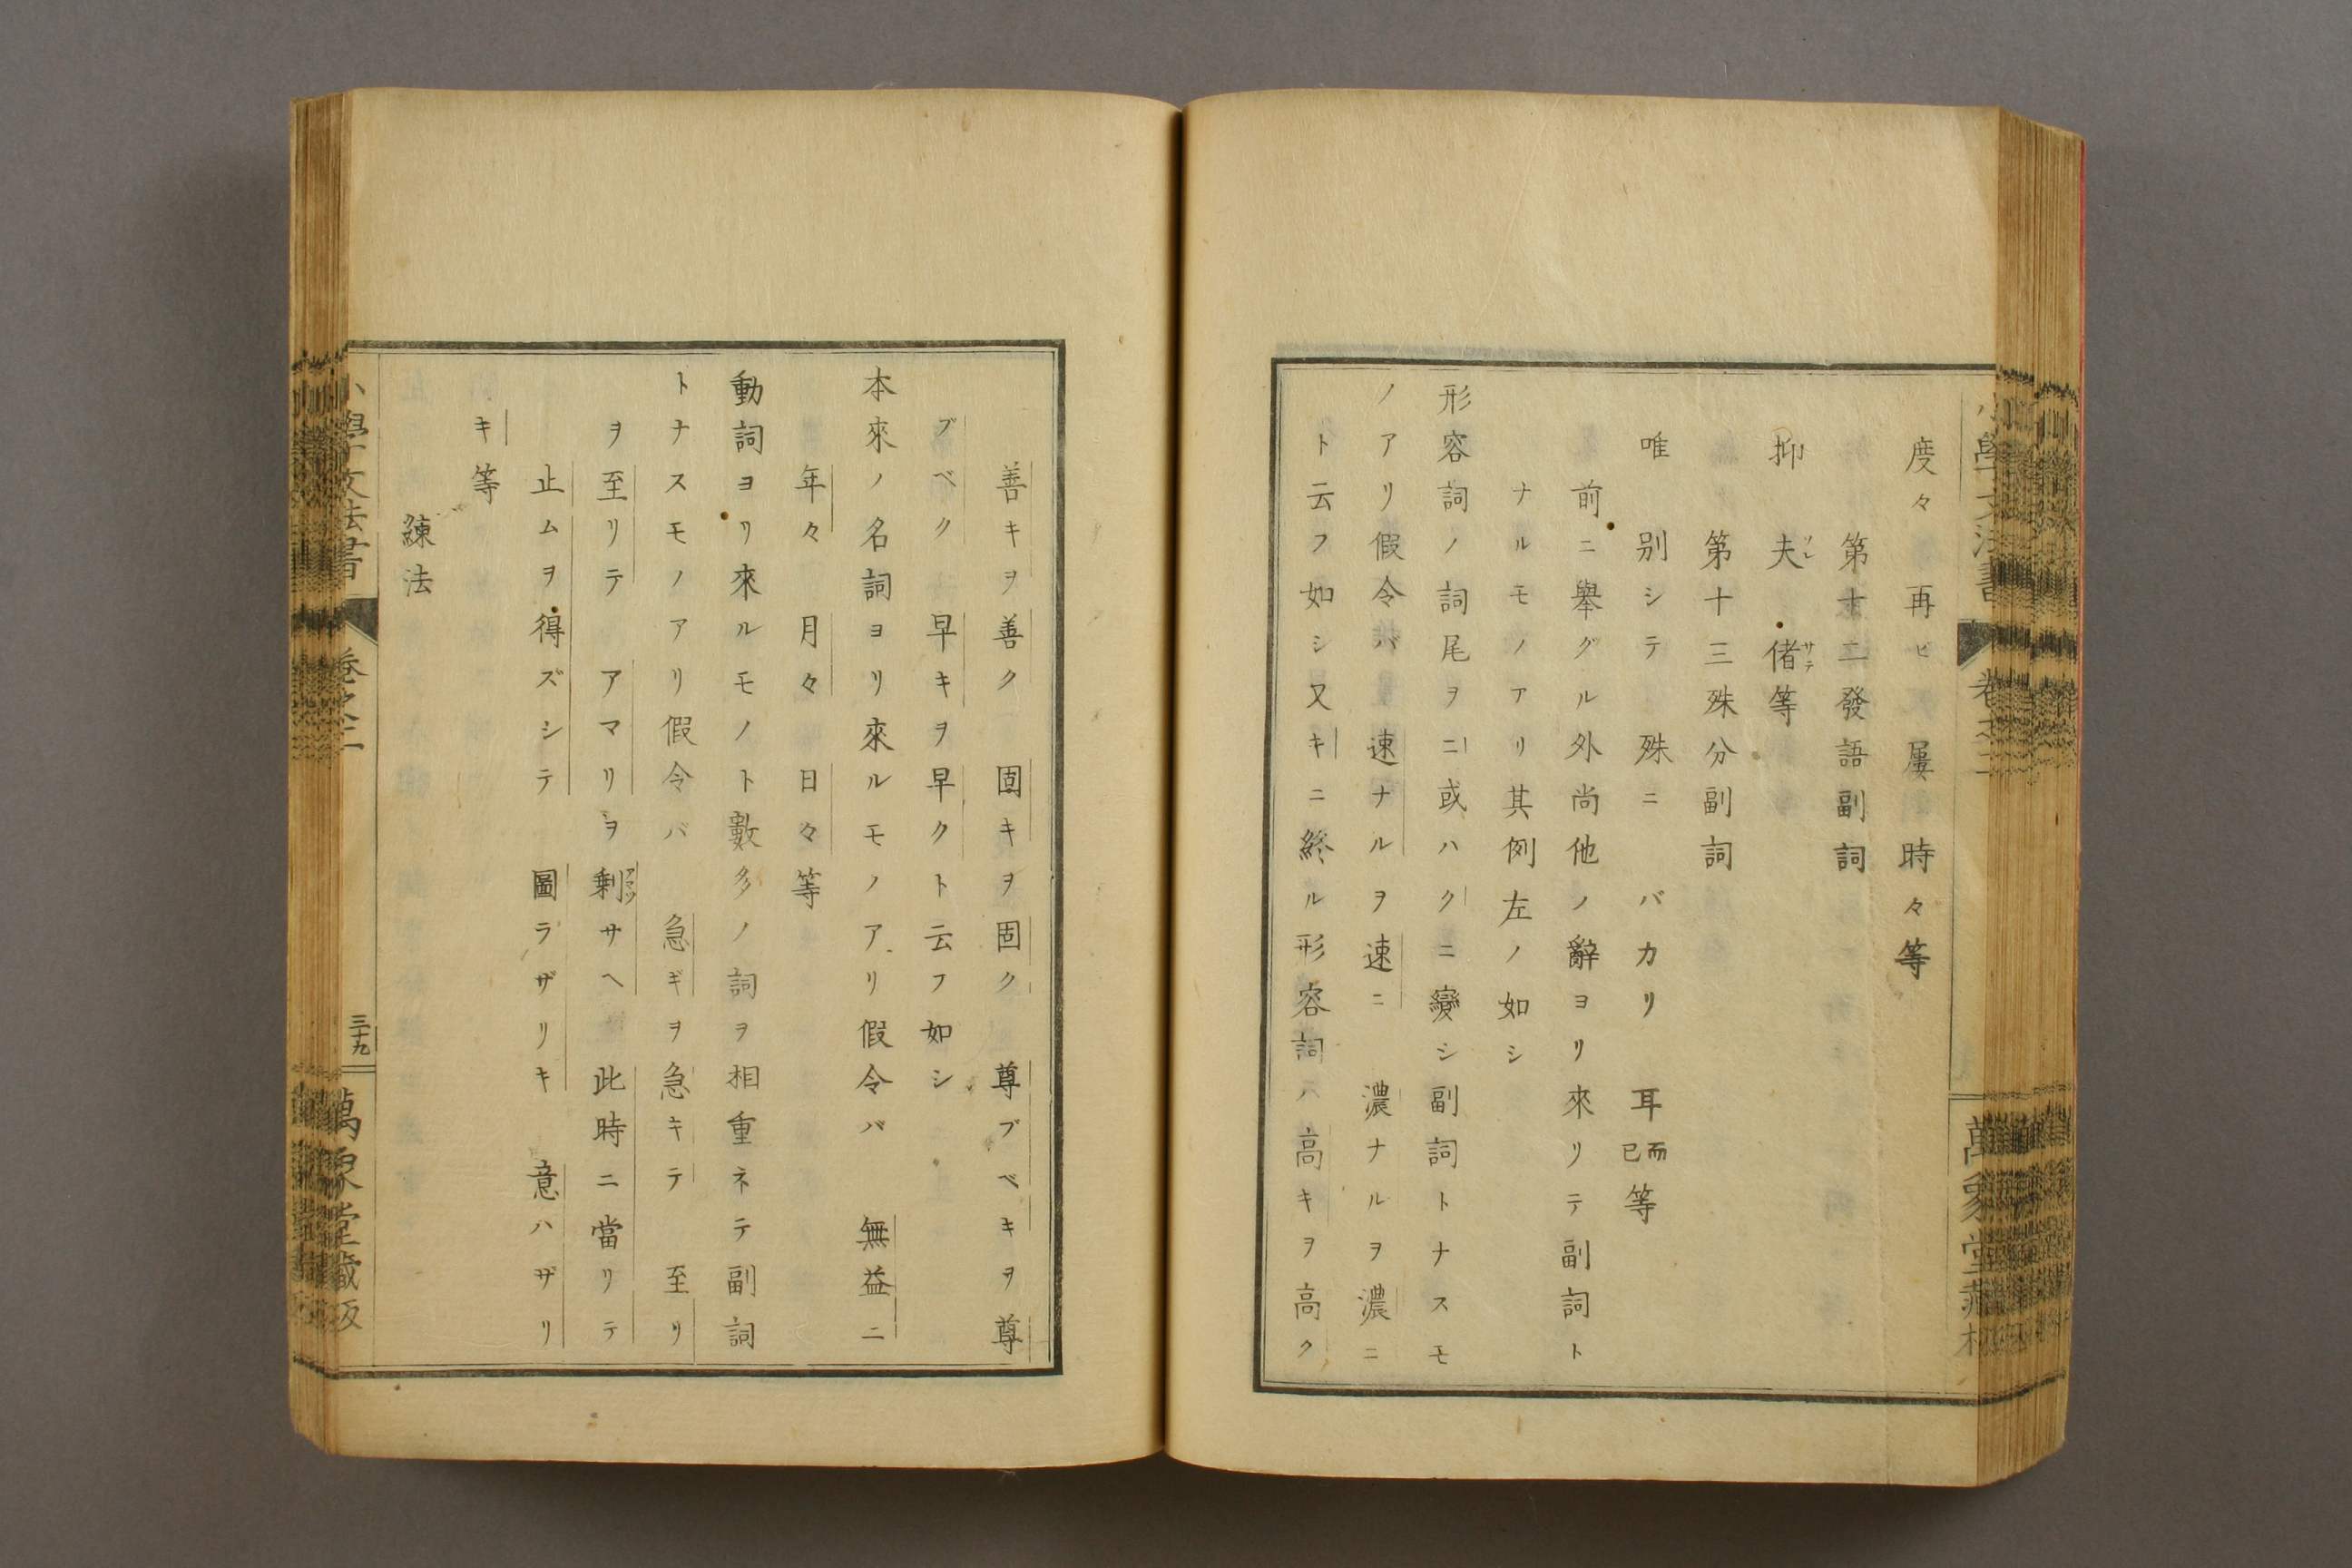 度々　再ビ　屢　時々等
第十二發語副詞
抑　夫ソレ　偖サテ等
第十三殊分副詞
唯　別シテ　殊ニ　バカリ　耳而已等
前ニ擧グル外尚他ノ辭ヨリ來リテ副詞ト
ナルモノアリ其例左ノ如シ
形容詞ノ詞尾ヲニ或ハクニ變シ副詞トナスモ
ノアリ假令バ　速ナルヲ速ニ　濃ナルヲ濃ニ
ト云フ如シ又キニ終ル形容詞ハ高キヲ高ク
善キヲ善ク　固キヲ固ク　尊ブベキヲ尊
ブベク　早キヲ早クト云フ如シ
本來ノ名詞ヨリ來ルモノアリ假令バ　無益ニ
年々　月々　日々等
動詞ヨリ來ルモノト數多ノ詞ヲ相重ネテ副詞
トナスモノアリ假令バ　急ギヲ急キテ　至リ
ヲ至リテ　アマリヲ剩アマツサヘ　此時ニ當リテ
止ムヲ得ズシテ　圖ラザリキ　意ハザリ
キ等
練法
小學文法書　卷之二　三十九　萬象堂藏版